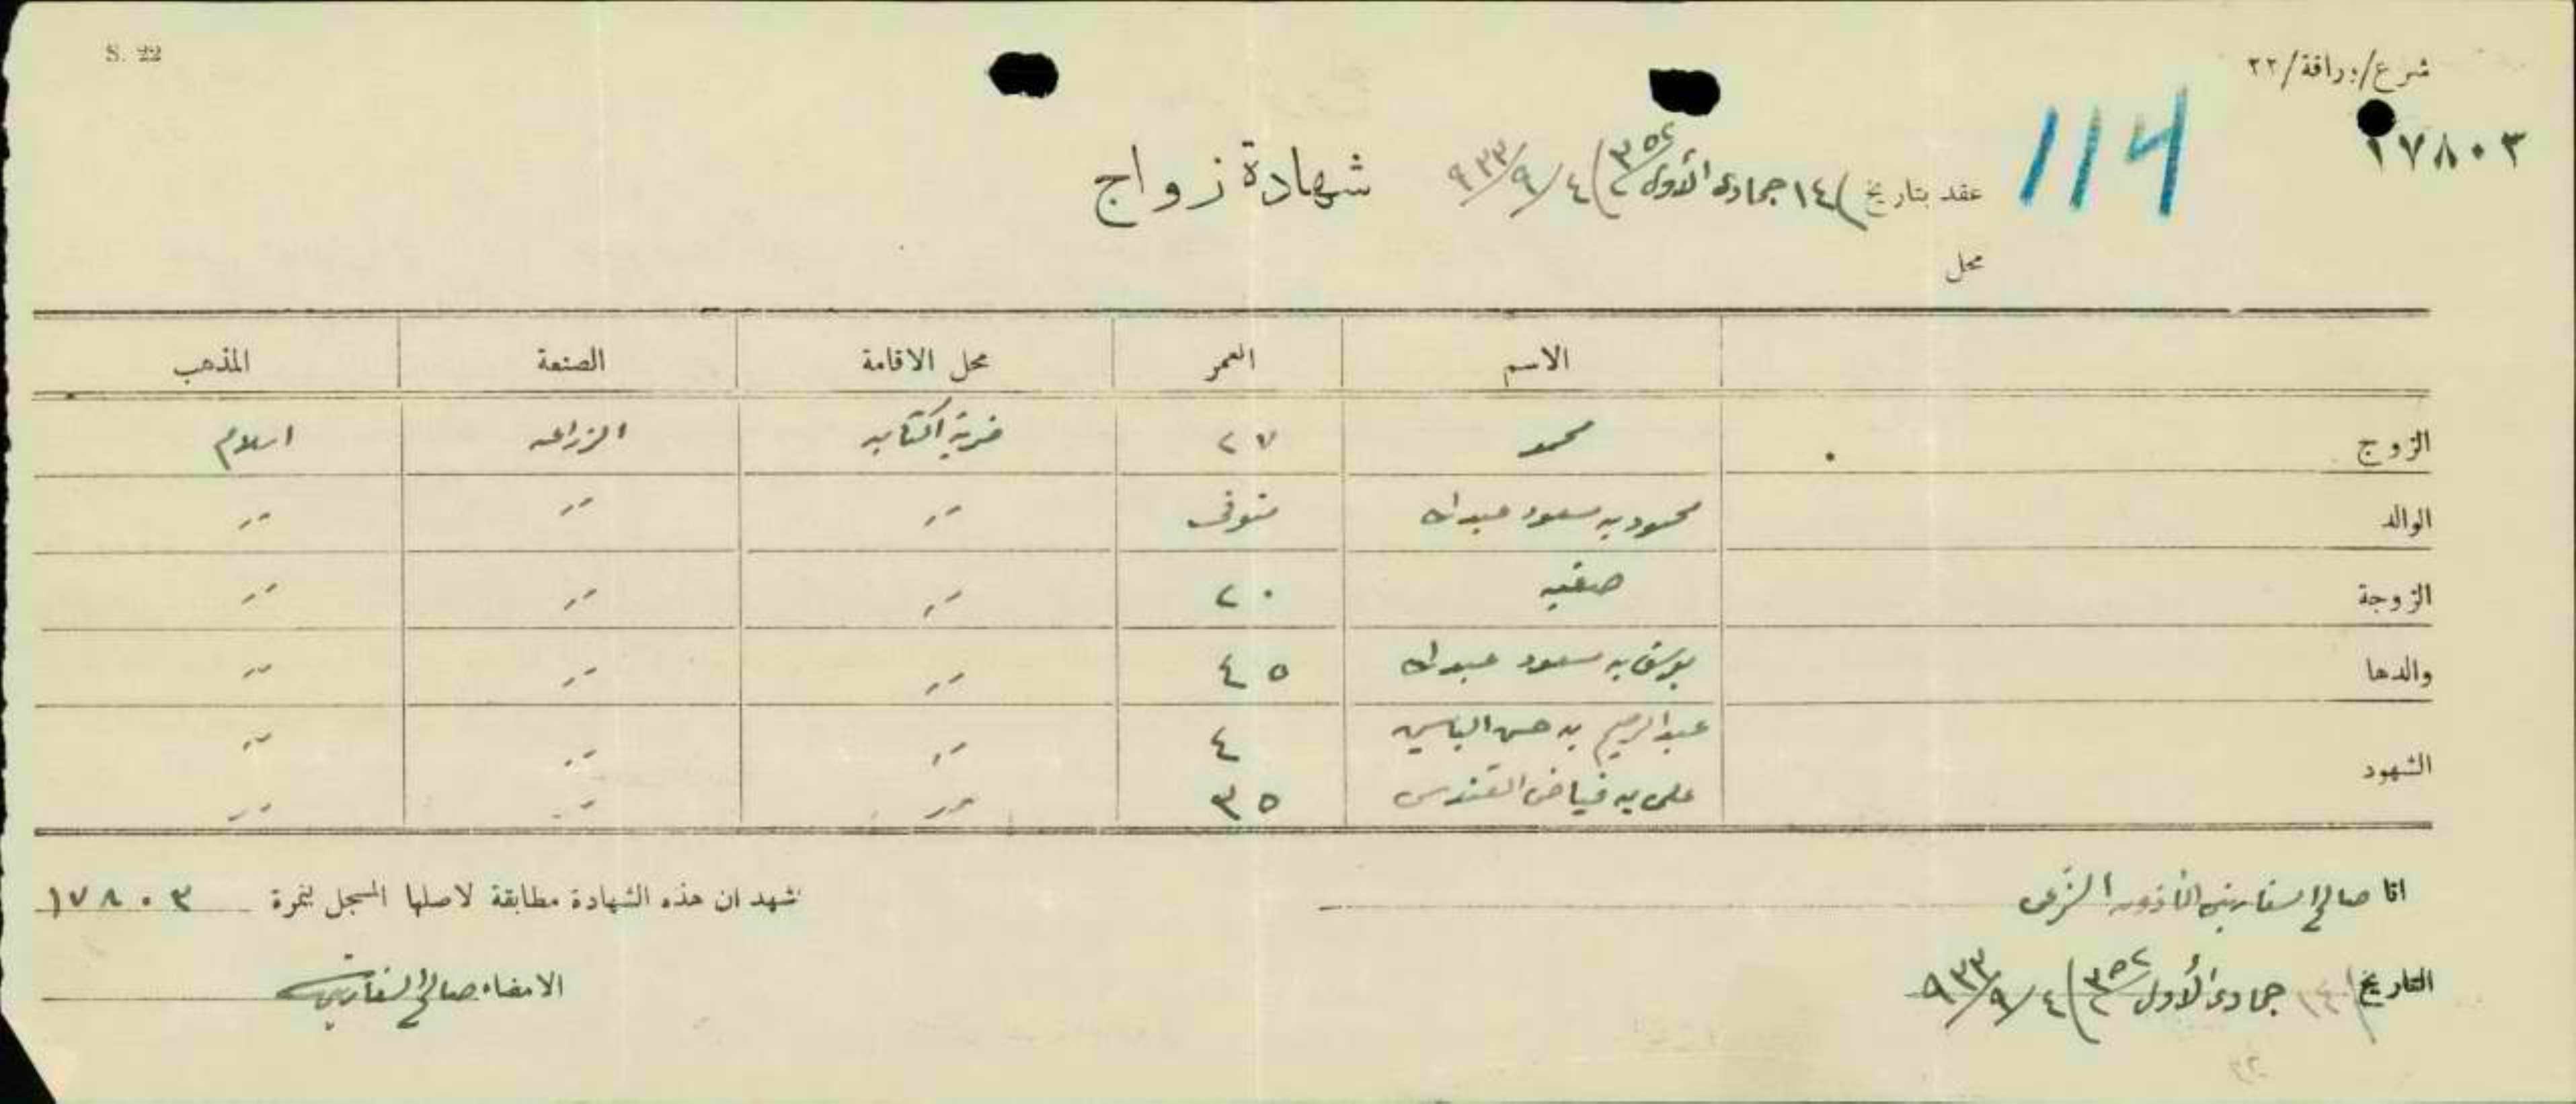 S. 22
شرع/وراقة/٢٢
١٧٨٠٣
114
عقد بتاريخ (١٤ جمادى الأولى ٣٥٢) ٤/٩/٩٣٣
شهادة زواج
محل
الاسم العمر محل الاقامة الصنعة المذهب
الزوج محمد ٢٧ الزراعه اسلام
الوالد محمود بن مسعود عبدالله متوفى 〃 〃 〃
الزوجة صفيه ٢٠ 〃 〃 〃
والدها يوسف بن مسعود عبدالله ٤٥ 〃 〃 〃
الشهود عبدالرحيم بن حسن الياسين ٤ 〃 〃 〃
علي بن فياض ٣٥ 〃 〃 〃
انا صالح السفاريني المأذون الشرعي
نشهد ان هذه الشهادة مطابقة لاصلها المسجل بنمرة ١٧٨٠٣
التاريخ (١٤ جمادى الأولى ٣٥٢) ٤/٩/٩٣٣
الامضاء صالح السفاريني